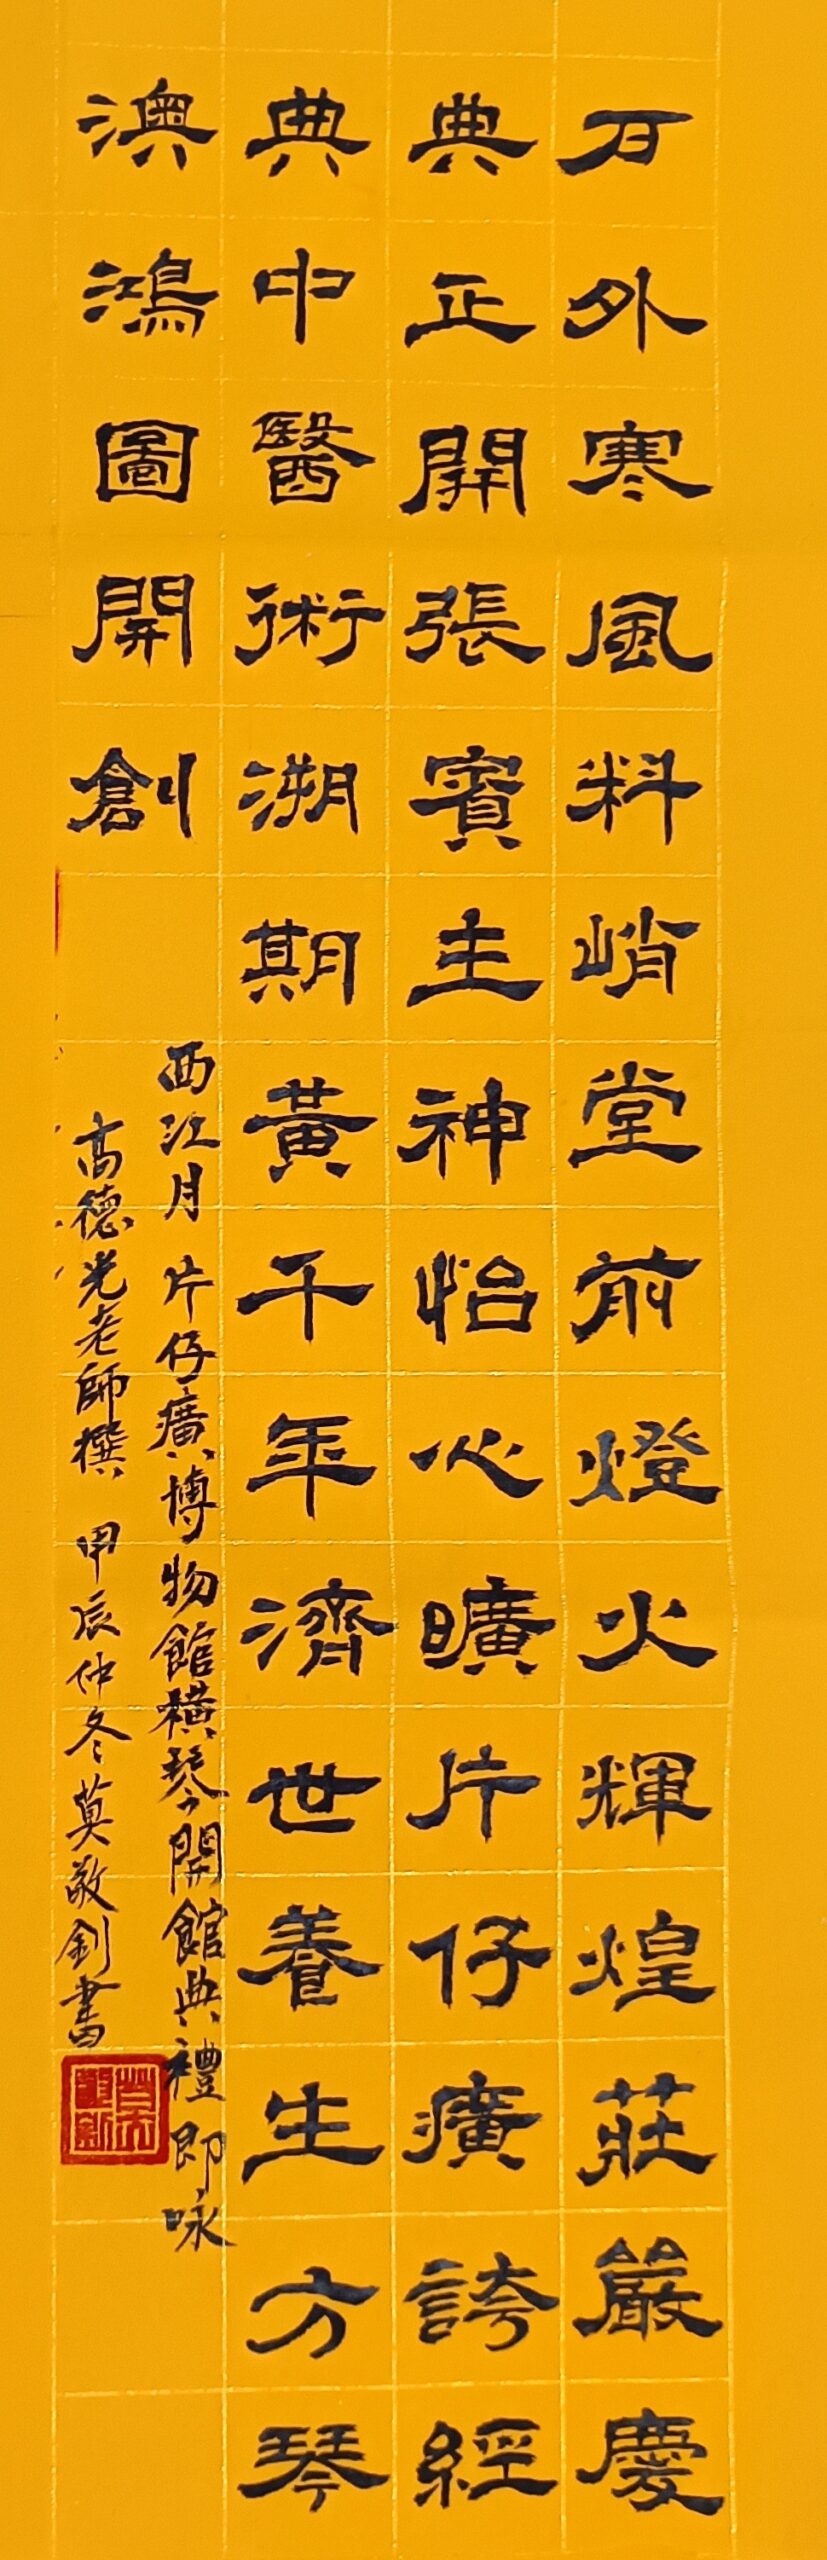 戶外寒風料峭堂前燈火輝煌莊嚴慶
典正開張賓主神怡心曠片仔癀誇經
典中醫術溯期黃千年濟世養生方琴
澳鴻圖開創
西江月 片仔癀博物館橫琴開館典禮即咏
高德光老師撰 甲辰仲冬莫敬釗書
莫敬釗